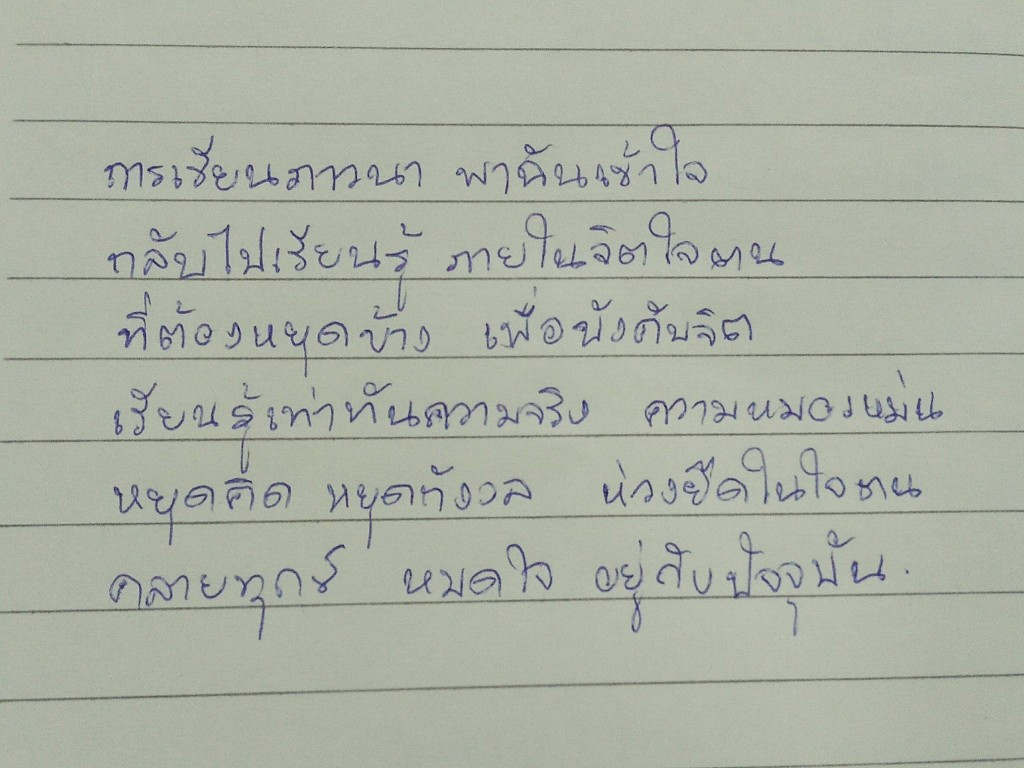 การเรียนภาวนา พาฉันเข้าใจ
กลับไปเรียนรู้ ภายในจิตใจตน
ที่ต้องหยุดบ้าง เพื่อบังคับจิต
เรียนรู้เท่าทันความจริง ความหมองหม่น
หยุดคิด หยุดกังวล ห่วงยึดในใจตน
คลายทุกข์ หมดใจ อยู่กับปัจจุบัน.